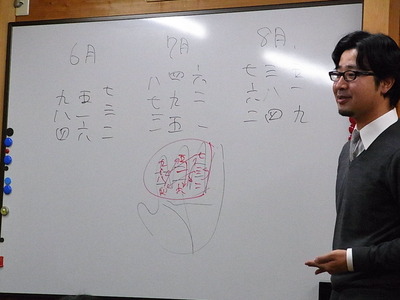 6月 7月 8月
九 五 七
八 一 三
四 六 二
八 四 六
七 九 二
三 五 一
七 三
六 八 一
二 四 九